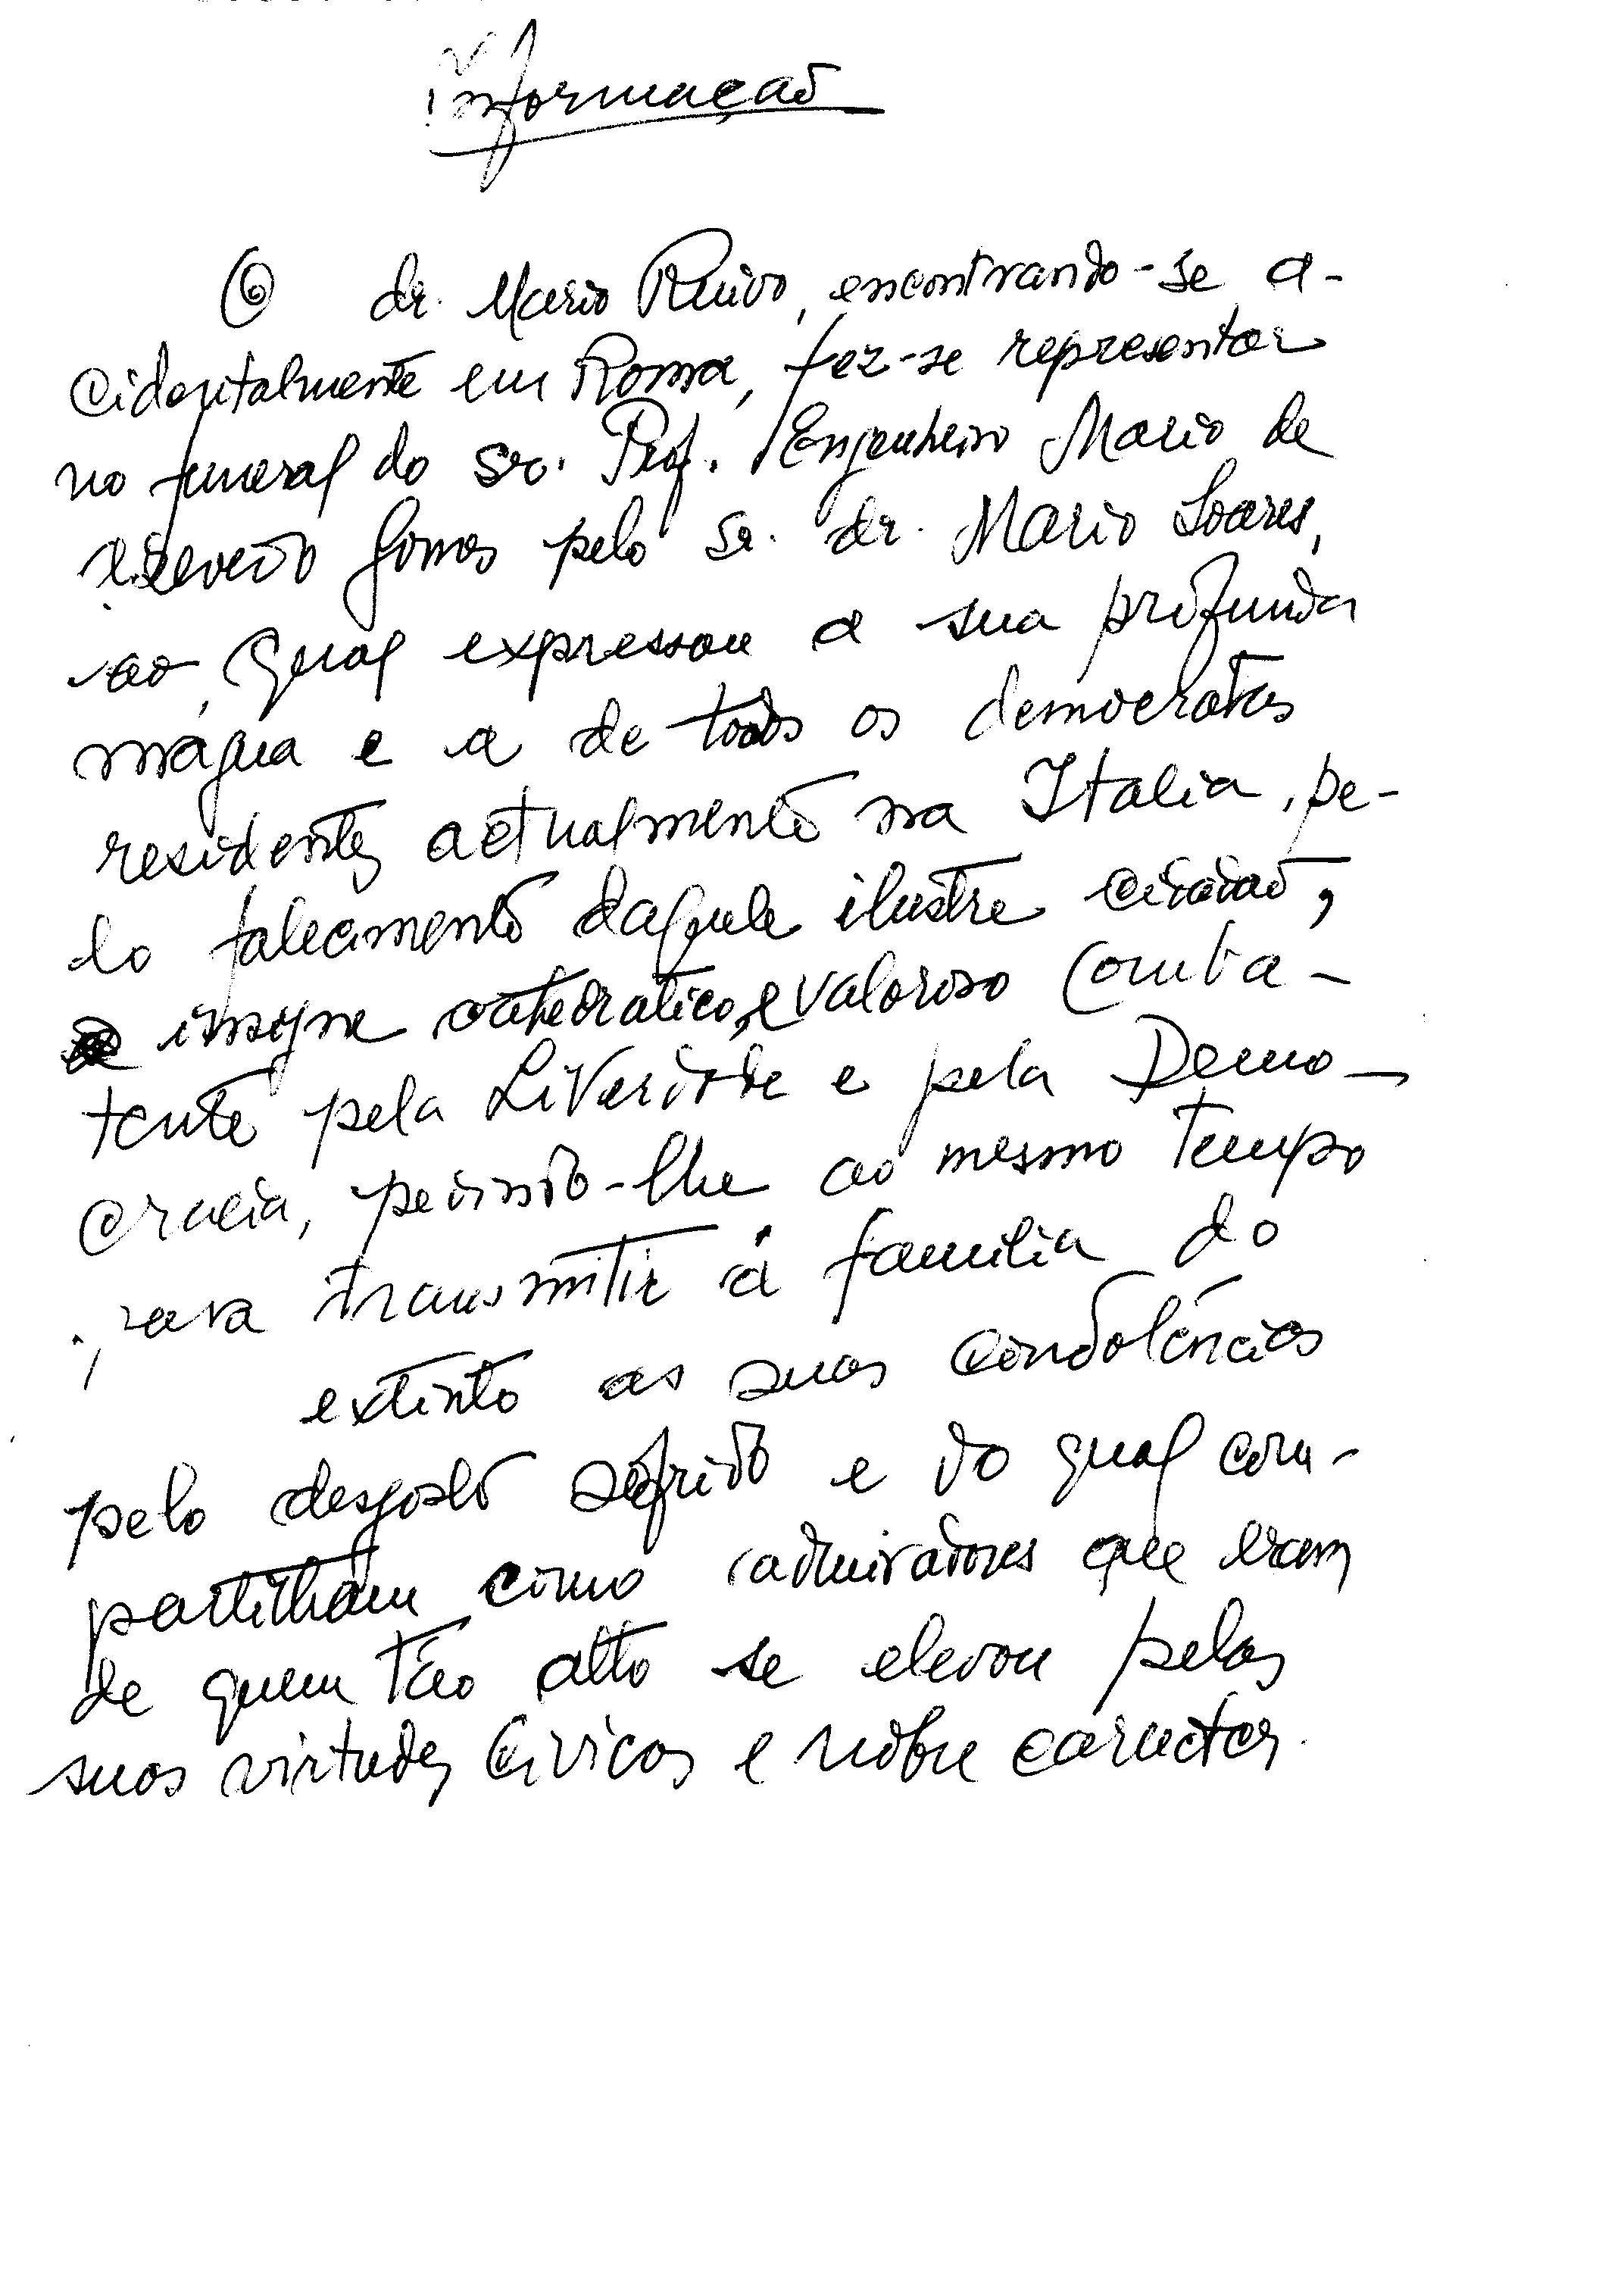 Informação
O dr. Mario Ruivo, encontrando-se a-
cidentalmente em Roma, fez-se representar
no funeral do sr. Prof. Engenheiro Mario de
Azevedo Gomes pelo sr. dr. Mario Soares,
ao qual expressou a sua profunda
mágua e a de todos os democratas
residentes actualmente na Italia, pe-
lo falecimento daquele ilustre cidadão,
insigne catedratico, e valoroso Comba-
tente pela Liberdade e pela Demo-
cracia, pedindo-lhe ao mesmo tempo
para transmitir á familia do
extinto as suas condolências
pelo desgosto sofrido e do qual com-
partilham como admiradores que eram
de quem tão alto se elevou pelas
suas virtudes civicas e nobre caracter.